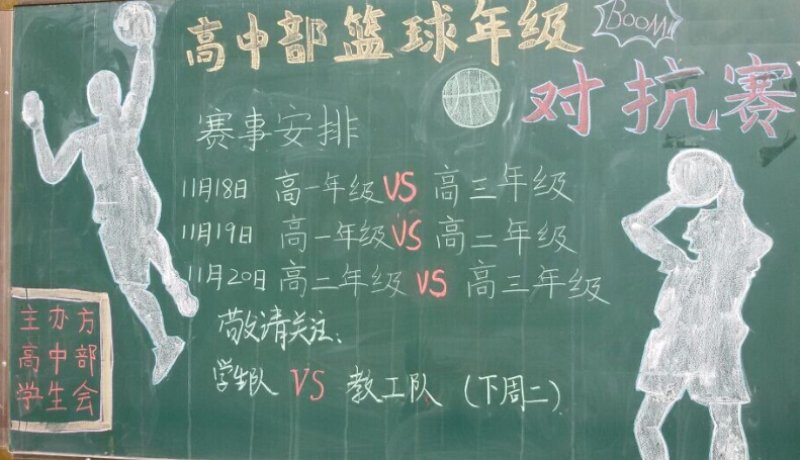 高中部篮球年级
BOOM!
对抗赛
赛事安排
11月18日 高一年级 VS 高三年级
11月19日 高一年级 VS 高二年级
11月20日 高二年级 VS 高三年级
敬请关注:
学生队 VS 教工队 (下周二)
主办方
高中部
学生会